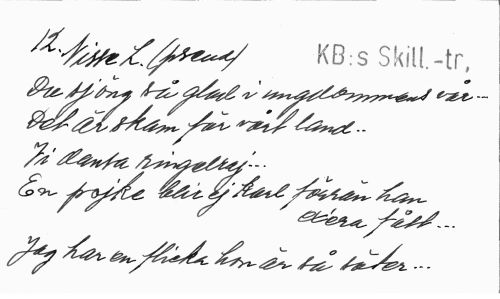 12. Nisse L. (pseud)
KB:s Skill.-tr,
Du sjöng så glad i ungdommens vår...
Det är skam för vårt land..
Vi dansa ringelrej...
En pojke blir ej karl förrän han
flera fått...
Jag har en flicka hon är så söter...